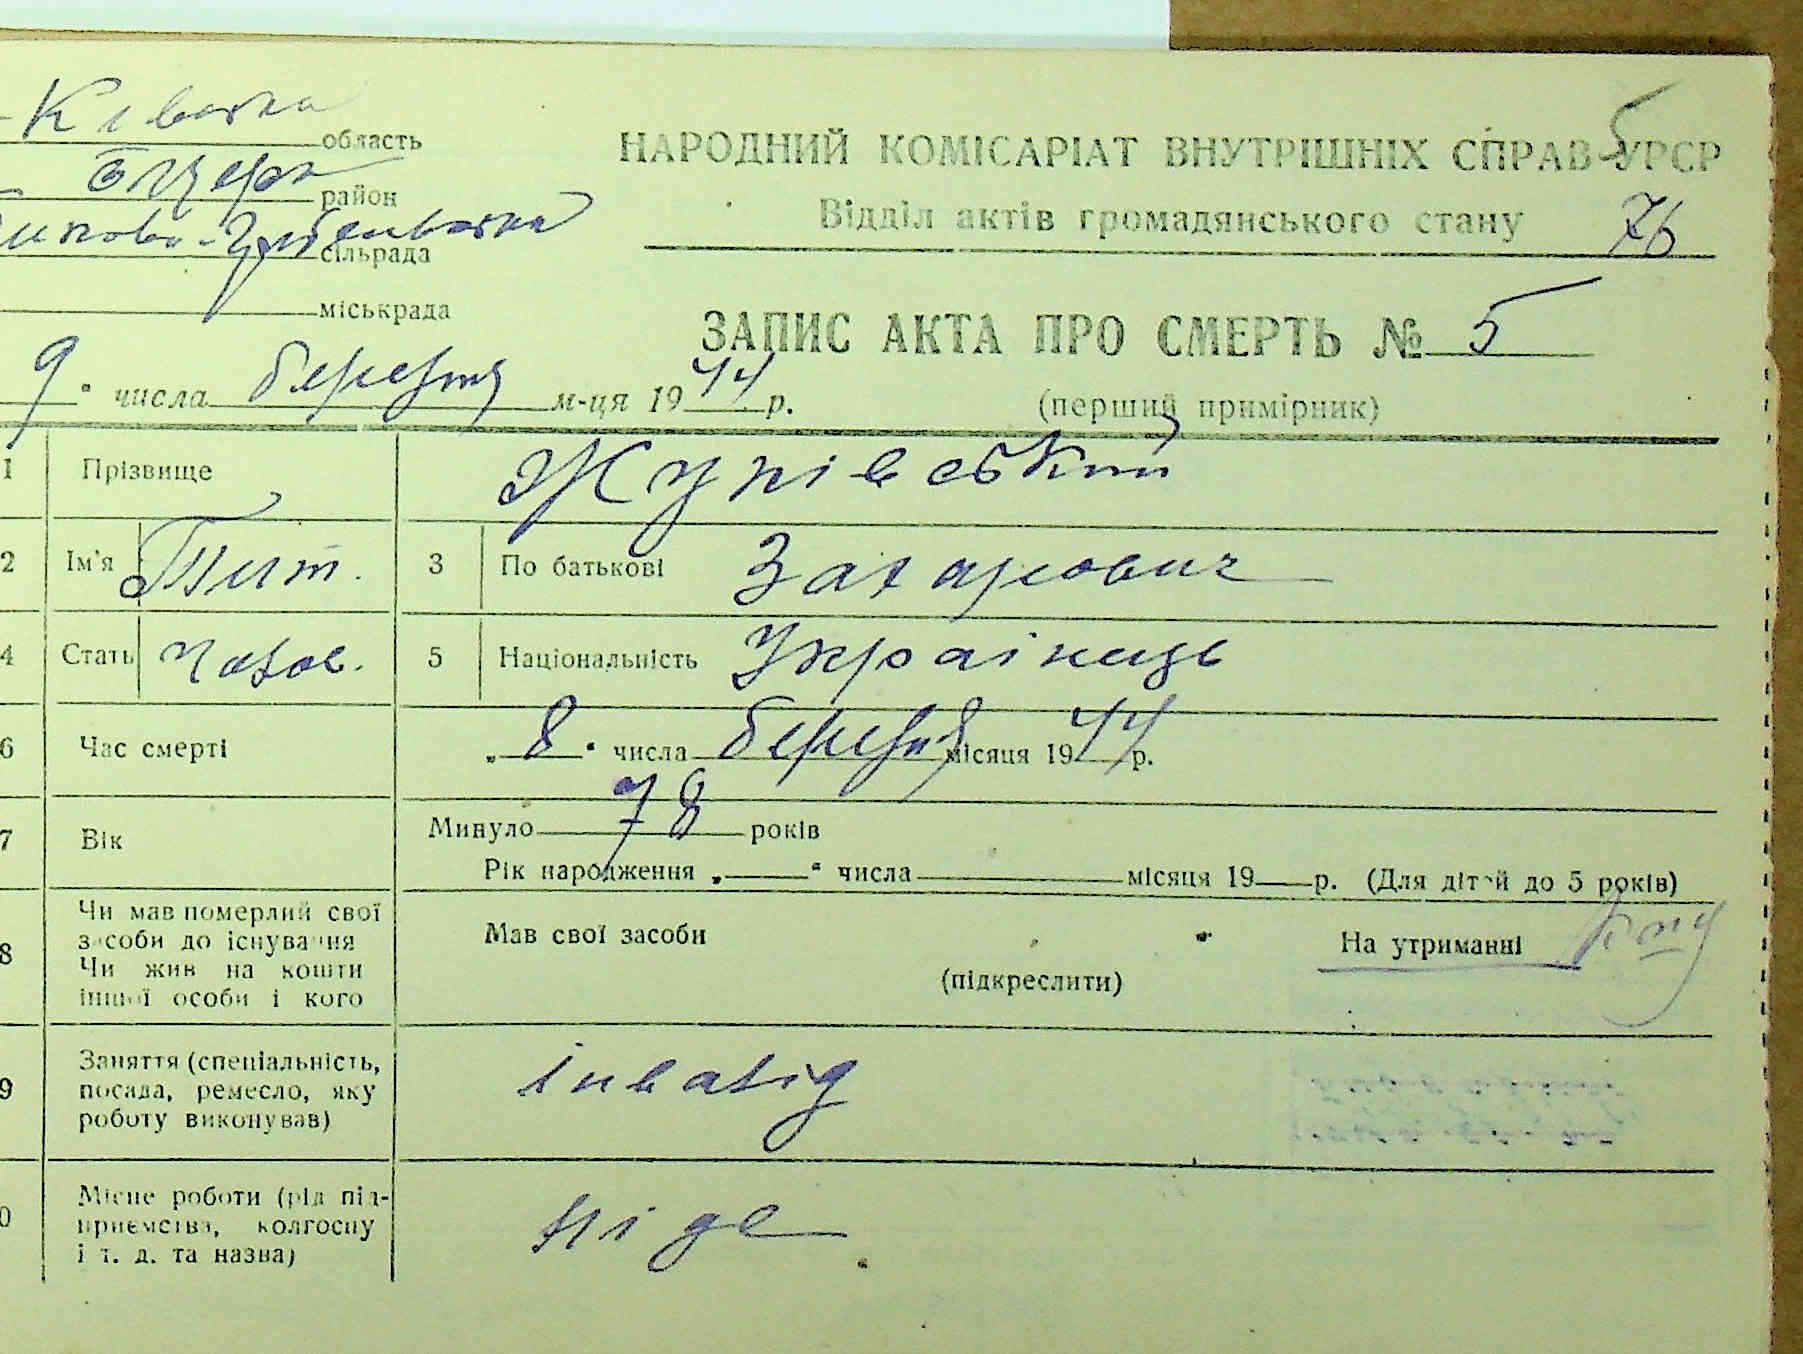 Київська область
Б Церк район
сільрада
міськрада
НАРОДНИЙ КОМІСАРІАТ ВНУТРІШНІХ СПРАВ УРСР
5
Відділ актів громадянського стану
76
ЗАПИС АКТА ПРО СМЕРТЬ № 5
9 " числа березня м-ця 1944 р.
(перший примірник)
1 Прізвище Жупівський
2 Ім'я Тит. 3 По батькові Захарович
4 Стать Чолов. 5 Національність Українець
6 Час смерті „ 8 " числа березня місяця 1944 р.
7 Вік Минуло 78 років
Рік народження „ " числа місяця 19 р. (Для дітей до 5 років)
8 Чи мав померлий свої засоби до існування
Чи жив на кошти іншої особи і кого
Мав свої засоби На утриманні
(підкреслити)
9 Заняття (спеціальність, посада, ремесло, яку роботу виконував) інвалід
0 Місце роботи (рід підприємства, колгоспу і т. д. та назва) ніде